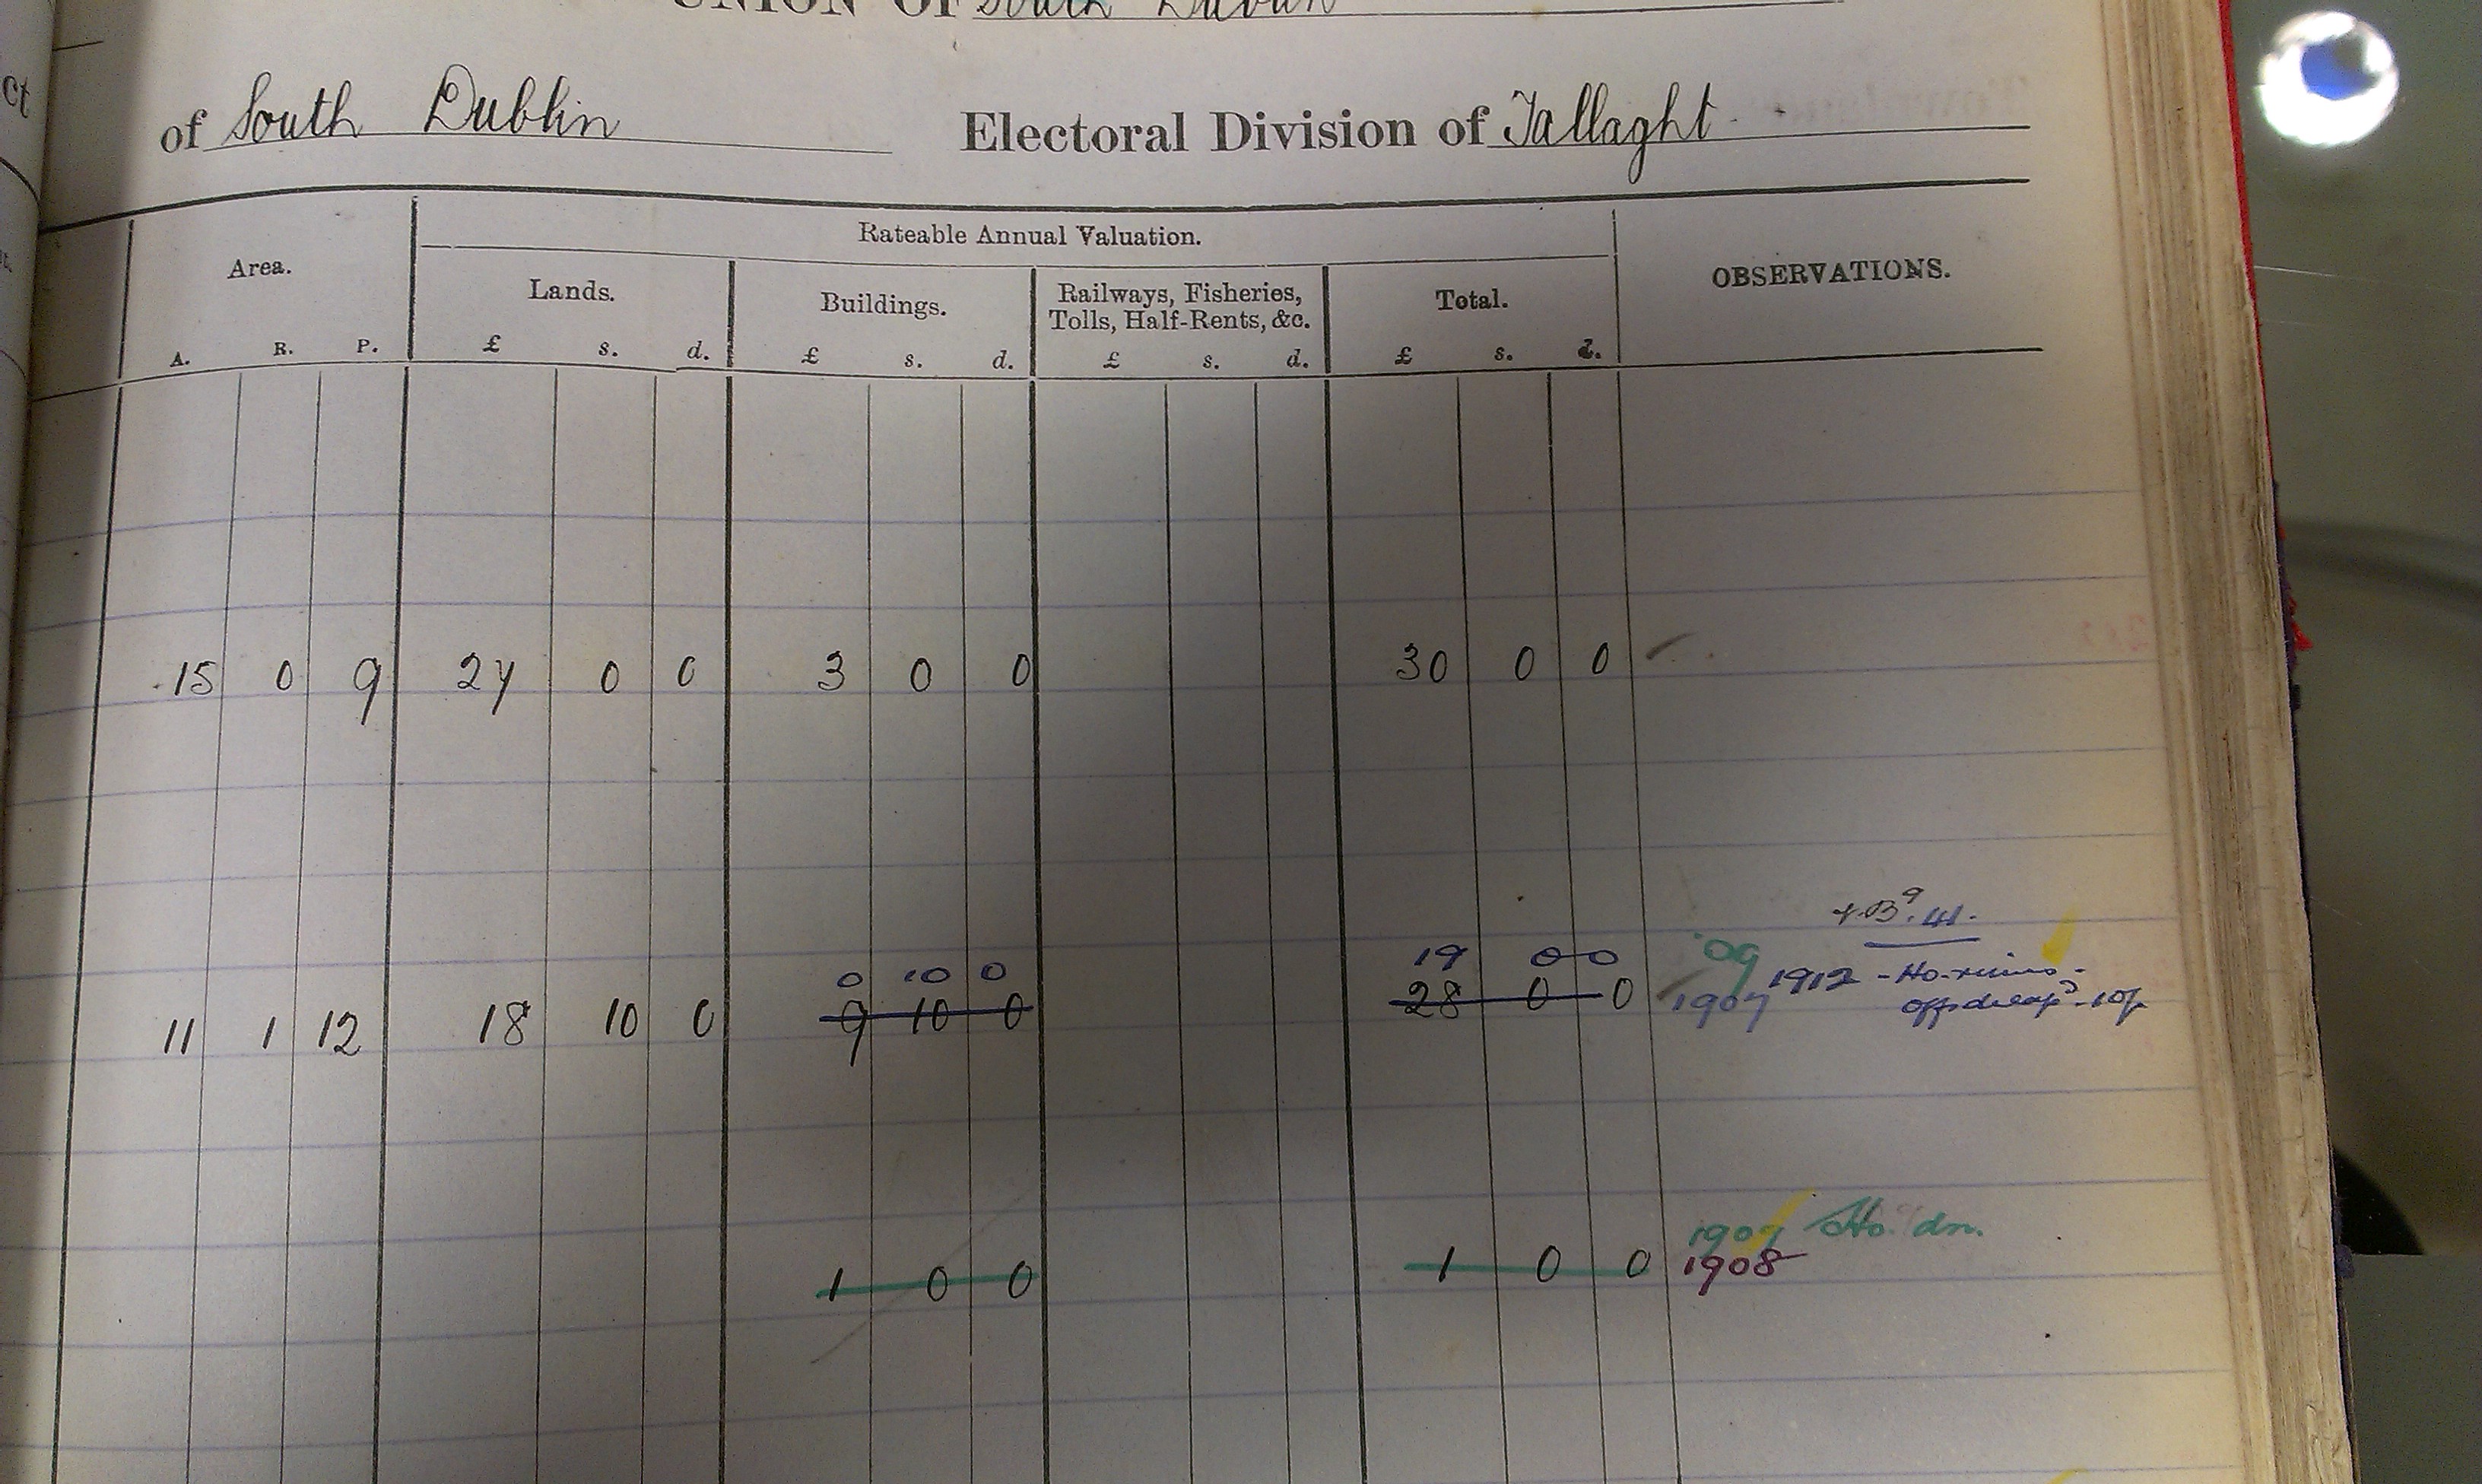 UNION OF South Dublin
ct
of South Dublin Electoral Division of Tallaght
Area. Rateable Annual Valuation. OBSERVATIONS.
Lands. Buildings. Railways, Fisheries, Tolls, Half-Rents, &c. Total.
A. R. P. £ s. d. £ s. d. £ s. d. £ s. d.
15 0 9 27 0 0 3 0 0 30 0 0
0 10 0 19 0 0 '09
11 1 12 18 10 0 9 10 0 28 0 0 1907 1912 - Ho. ruins -
1907 Ho. dn.
1 0 0 1 0 0 1908